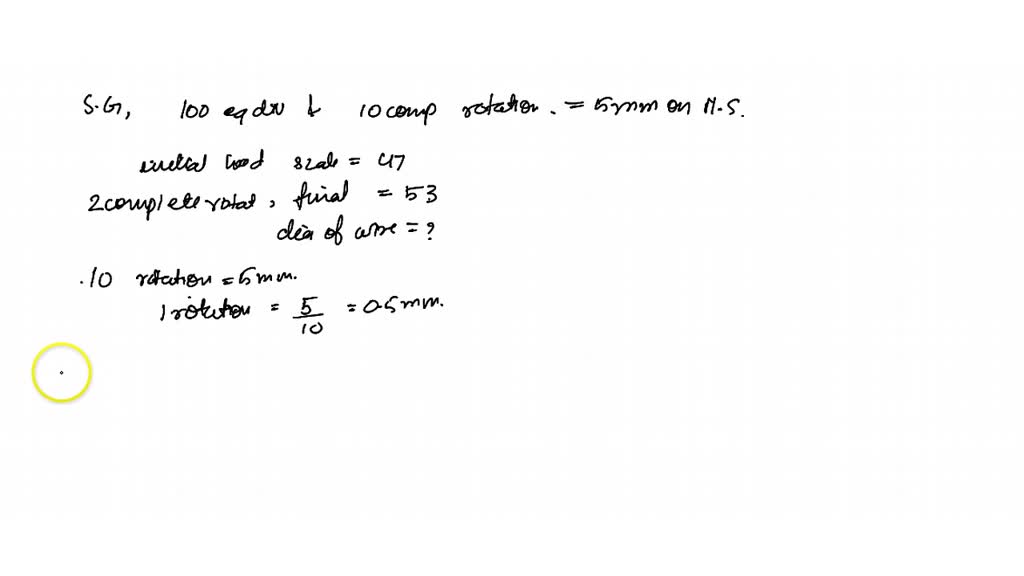 S.G, 100 eq div & 10 comp rotation. = 5mm on M.S.
scale = 47
2 complete rotat, final = 53
dia of wire = ?
.10 rotation = 5mm.
1 rotation = 5/10 = 0.5mm.